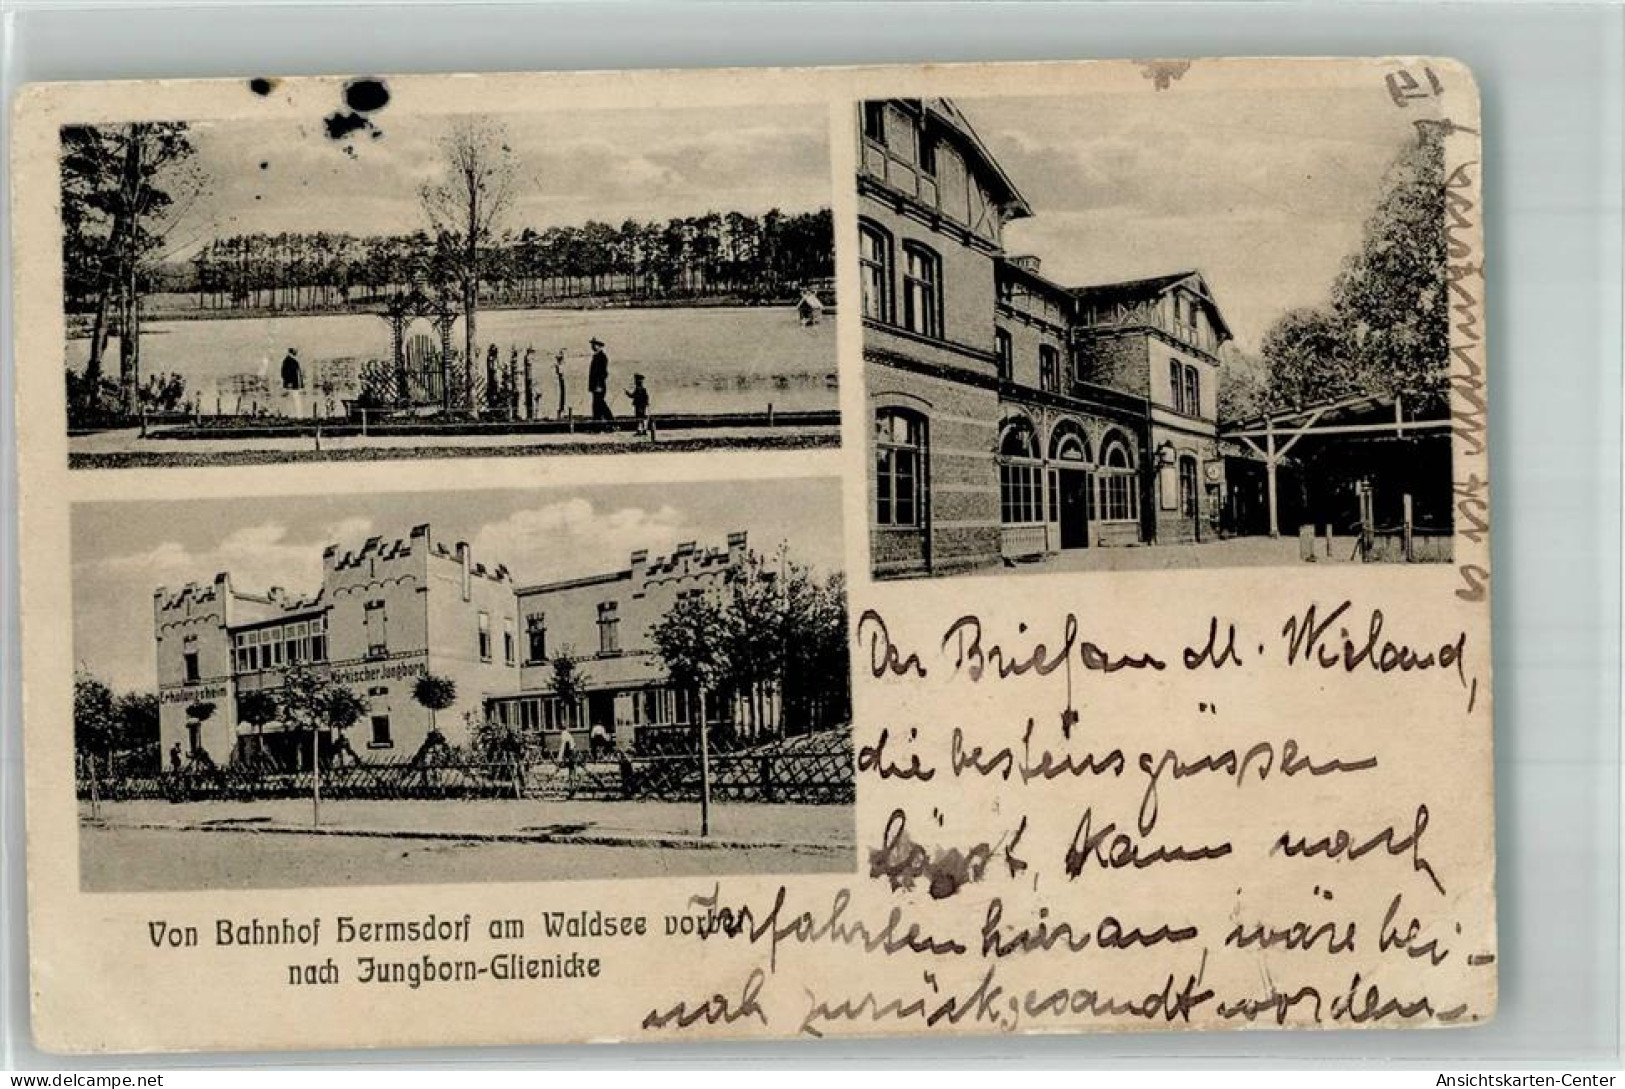 Erholungsheim
Märkischer Jungborn
Von Bahnhof Hermsdorf am Waldsee vorbei
nach Jungborn-Glienicke
III
Der Brief an M. Wieland,
die bestens grüssen
lässt, kam nach
Irrfahrten hier an, wäre bei-
nah zurückgesandt worden.
Ansichtskarten-Center